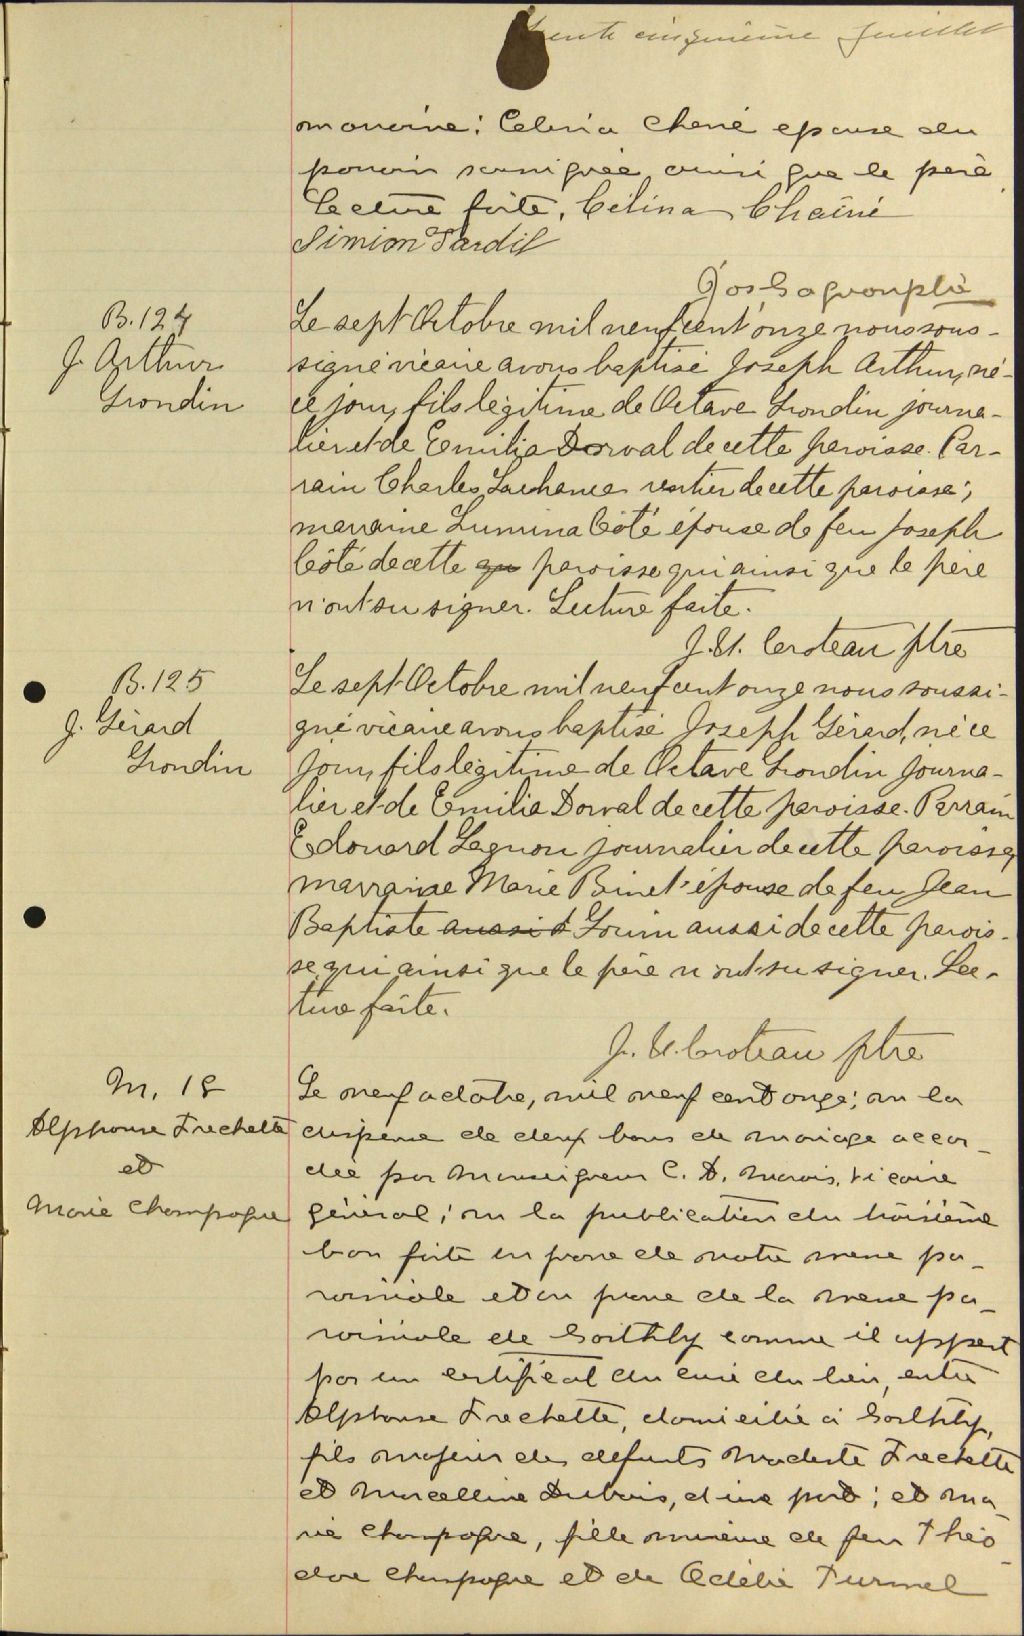 Trente cinquième feuillet
marraine: Celina Chené epouse du
parrain soussignée ainsi que le père
Lecture faite. Célina Chaîné
Simion Tardif
Jos Lagrouplè
B. 124
J. Arthur
Grondin
Le sept Octobre mil neuf cent onze nous sous-
signé vicaire avons baptisé Joseph Arthur, né
ce jour, fils légitime de Octave Grondin journa-
lier et de Emilia Dorval de cette paroisse. Par-
rain Charles Lachance rentier de cette paroisse;
marraine Lumina Côté épouse de feu Joseph
Côté de cette qu paroisse qui ainsi que le père
n'ont su signer. Lecture faite.
J. U. Croteau ptre
B. 125
J. Gérard
Grondin
Le sept Octobre mil neuf cent onze nous soussi-
gné vicaire avons baptisé Joseph Gérard, né ce
jour, fils légitime de Octave Grondin journa-
lier et de Emilia Dorval de cette paroisse. Parrain
Edouard Gagnon journalier de cette paroisse,
marraine Marie Binet épouse de feu Jean
Baptiste aussi d Gouin aussi de cette parois-
se, qui ainsi que le père n'ont su signer. Lec-
ture faite.
J. U. Croteau ptre
M. 18
Alphonse Frechette
et
Marie Champagne
Le neuf octobre, mil neuf cent onze; vu la
dispense de deux bans de mariage accor-
dée par Monseigneur C. A. Marois, vicaire
général; vu la publication du troisième
ban faite au prone de notre messe pa-
roissiale et au prone de la messe pa-
roissiale de comme il appert
par un certificat du curé du lieu, entre
Alphonse Frechette, domicilié à
fils majeur des défunts Modeste Frechette
et Marcelline Dubois, d'une part; et Ma-
rie Champagne, fille mineure de feu Théo-
dore Champagne et de Adélie Turmel